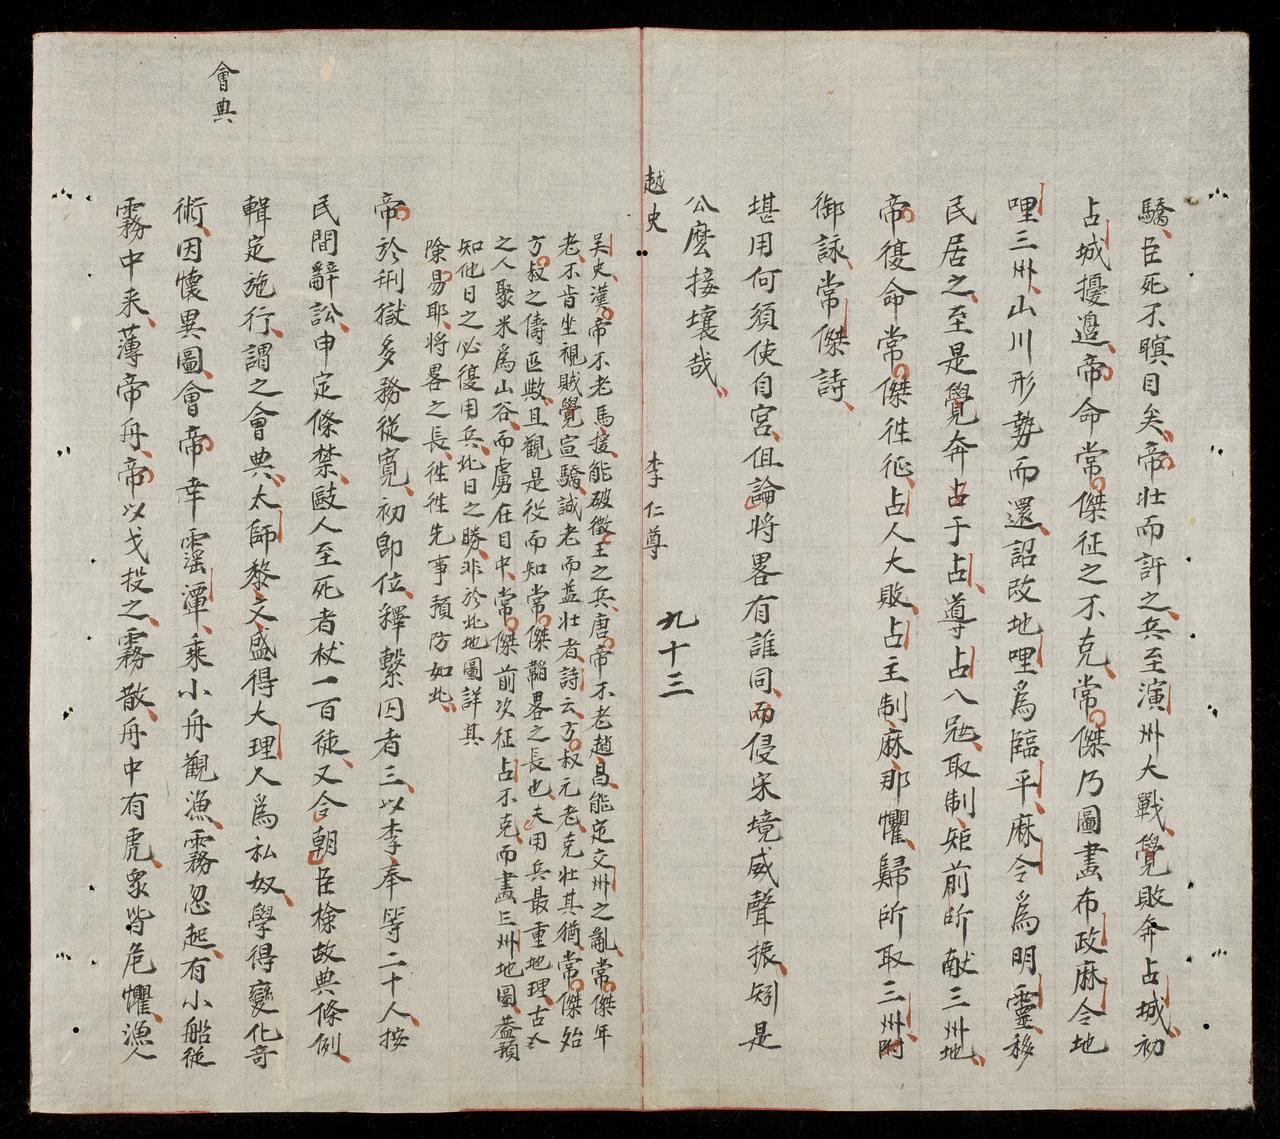 驕臣死不瞑目矣帝壯而許之兵至演州大戰覺敗奔占城初
占城擾邉帝命常傑征之不克常傑乃圖畫布政麻令地
哩三州山川形勢而還詔改地哩爲臨平麻令爲明靈移
民居之至是覺奔占于占導占人冦取制矩前所献三州地
帝復命常傑徃征占人大敗占主制麻那懼歸所取三州附
御詠常傑詩
堪用何須使自宮但論將畧有誰同而侵宋境威聲振矧是
公麽接壤哉
越史 李仁尊 九十三
吴史漢帝不老馬援能破徵王之兵唐帝不老趙昌能定交州之亂常傑年
老不肯坐視賊覺宣驕誠老而益壯者詩云方叔元老克壯其猶常傑殆
方叔之儔匹歟且觀是役而知常傑韜畧之長也夫用兵最重地理古今
之人聚米爲山谷而虜在目中常傑前次征占不克而畫三州地圖葢預
知他日之必復用兵此日之勝非於此地圖詳其
除易耶將畧之長徃徃先事預防如此
帝於刑獄多務從寬初卽位釋繫囚者三以李奉等二十人按
民間辭訟申定條禁毆人至死者杖一百徒又令朝臣檢故典條例
輯定施行謂之會典太師黎文盛得大理人爲私奴學得變化竒
會典
術因懷異圖會帝幸霪潭乘小舟觀漁霧忽起有小船從
霧中来薄帝舟帝以戈投之霧散舟中有虎衆皆危懼漁人